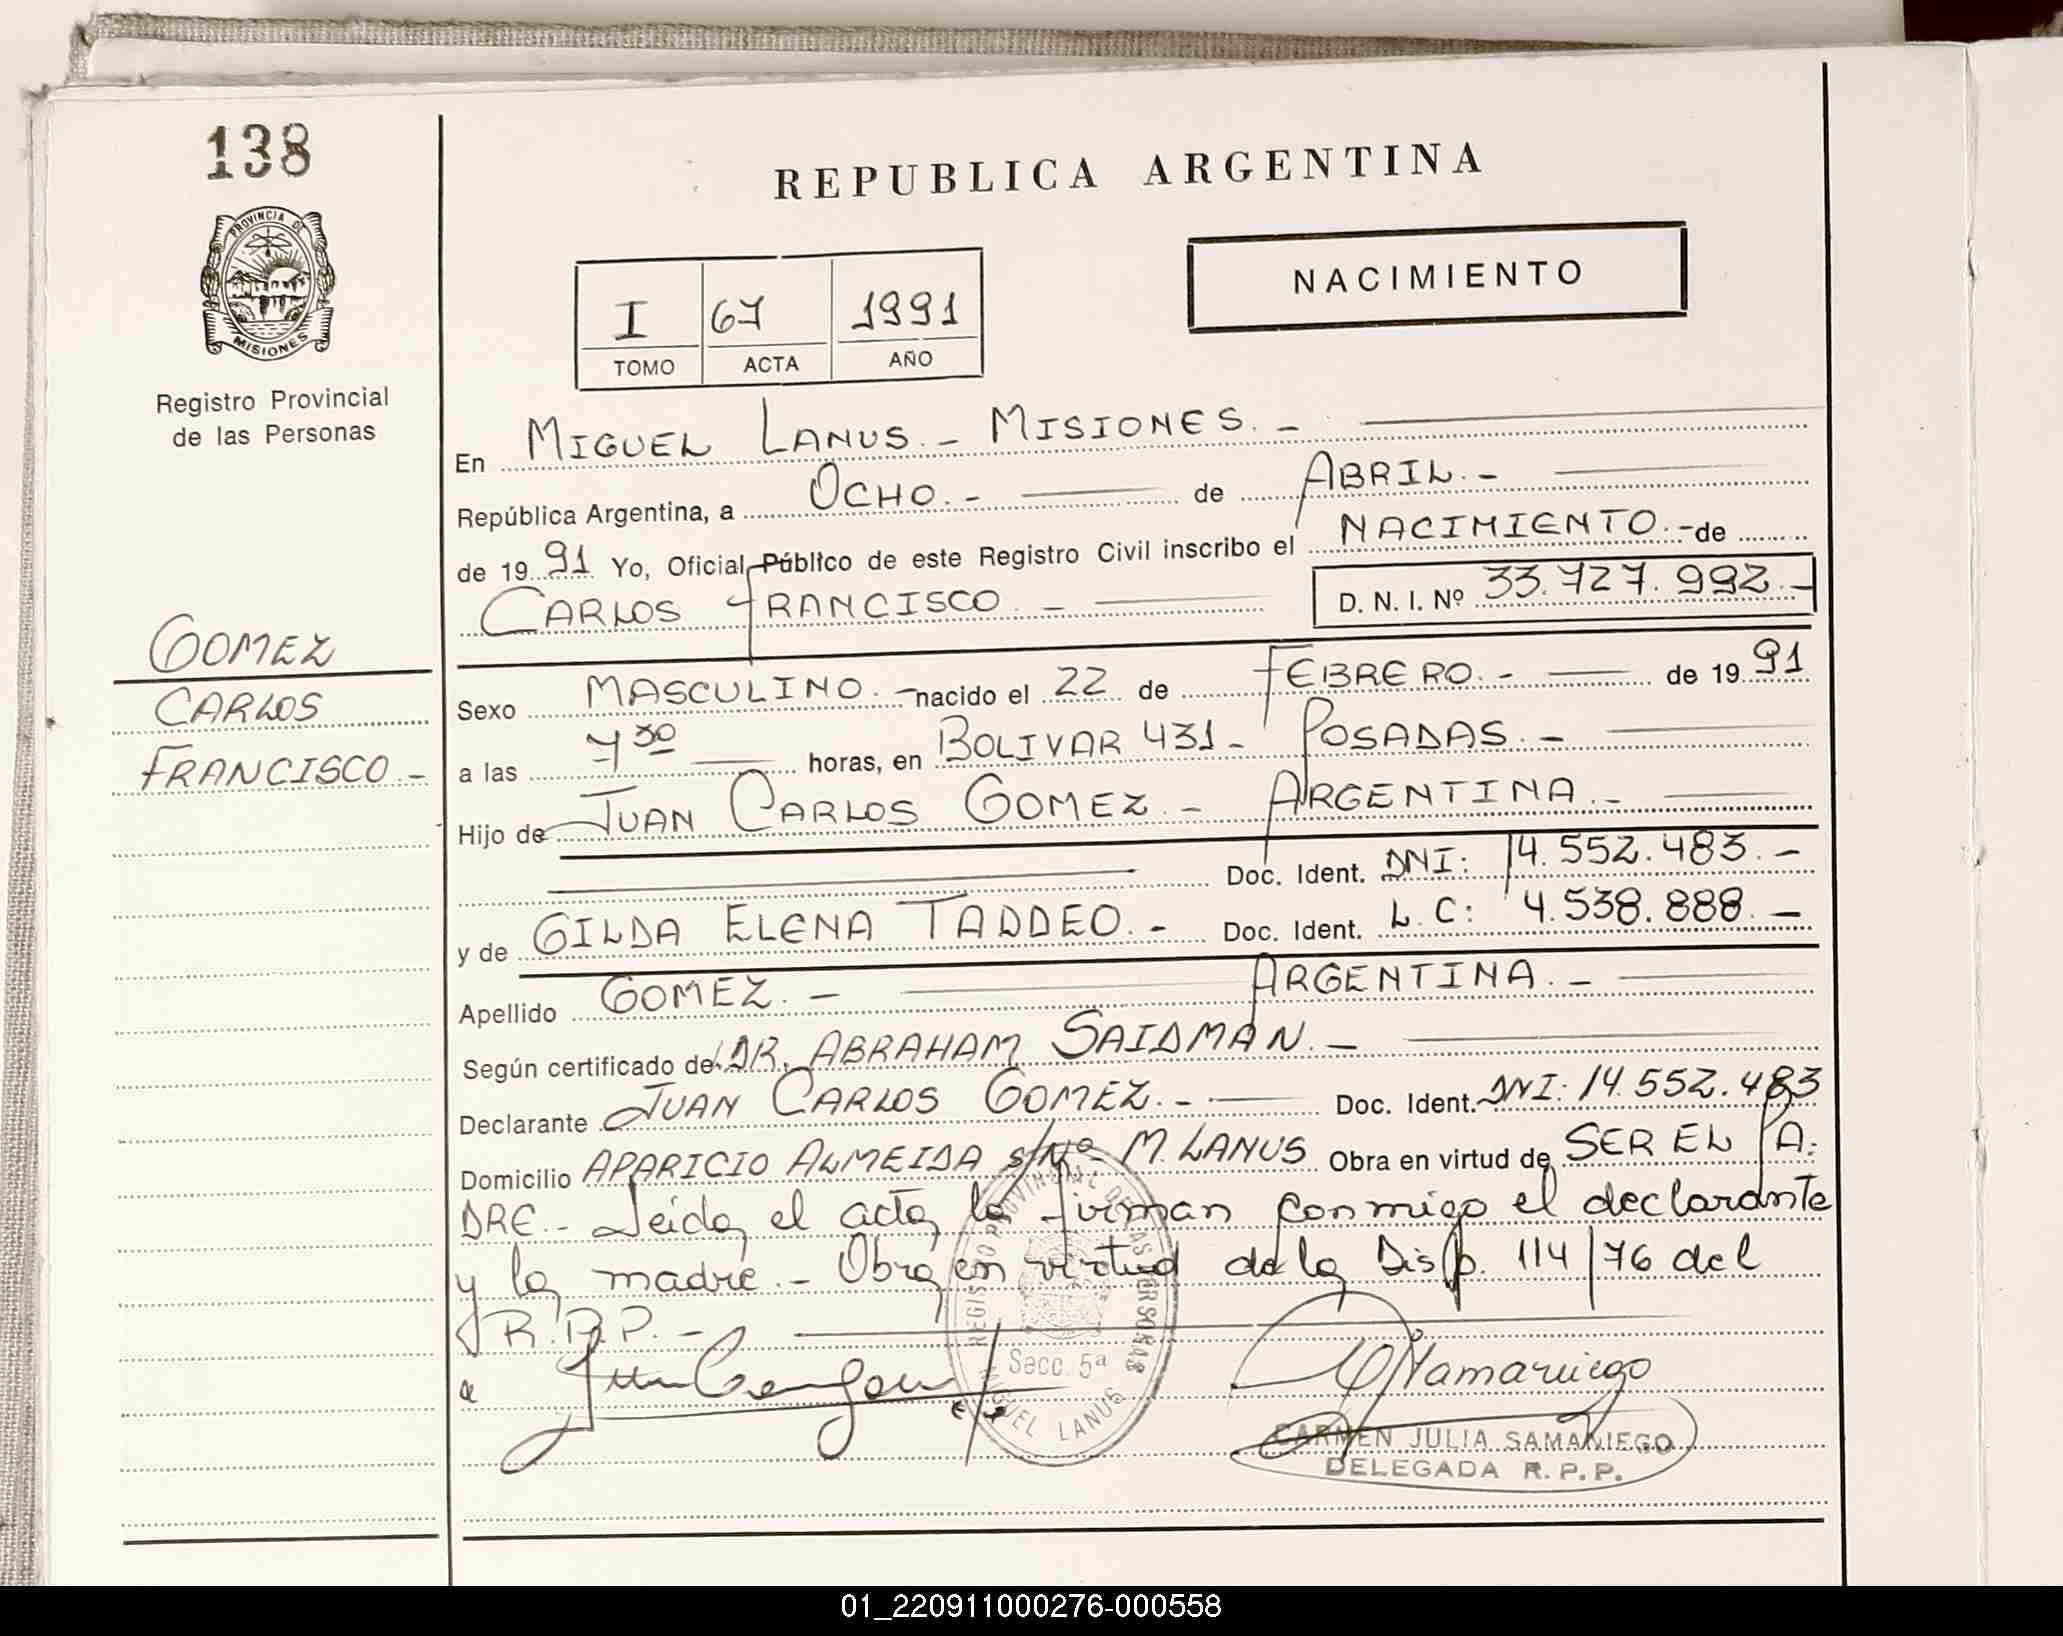 138
PROVINCIA DE
MISIONES
Registro Provincial
de las Personas
REPUBLICA ARGENTINA
NACIMIENTO
I 67 1991
TOMO ACTA AÑO
En MIGUEL LANUS.- MISIONES.-
República Argentina, a OCHO.- de ABRIL.-
de 1991 Yo, Oficial Público de este Registro Civil inscribo el NACIMIENTO.- de
CARLOS FRANCISCO.- D. N. I. Nº 33.727.992.-
GOMEZ
CARLOS
FRANCISCO.-
Sexo MASCULINO.- nacido el 22 de FEBRERO.- de 1991
a las 7 30 horas, en BOLIVAR 431- POSADAS.-
Hijo de JUAN CARLOS GOMEZ.- ARGENTINA.-
Doc. Ident. DNI: 14.552.483.-
y de GILDA ELENA TADDEO.- Doc. Ident. L.C: 4.538.888.-
Apellido GOMEZ.- ARGENTINA.-
Según certificado del DR. ABRAHAM SAIDMAN.-
Declarante JUAN CARLOS GOMEZ.- Doc. Ident. DNI: 14.552.483
Domicilio APARICIO ALMEIDA S/Nº- M. LANUS Obra en virtud de SER EL PA-
DRE.- Leida el acta la firman conmigo el declarante
y la madre.- Obra en virtud de la Disp. 114/76 del
R.P.P.-
REGISTRO PROVINCIAL DE LAS PERSONAS
Secc. 5ª
MIGUEL LANUS
CARMEN JULIA SAMANIEGO
DELEGADA R.P.P.
01_220911000276-000558